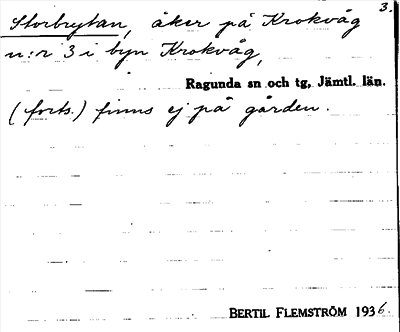 3.
Storbrytan, åker på Krokvåg
n:r 3 i byn Krokvåg,
Ragunda sn och tg, Jämtl. län.
(forts.) finns ej på gården.
BERTIL FLEMSTRÖM 1936.